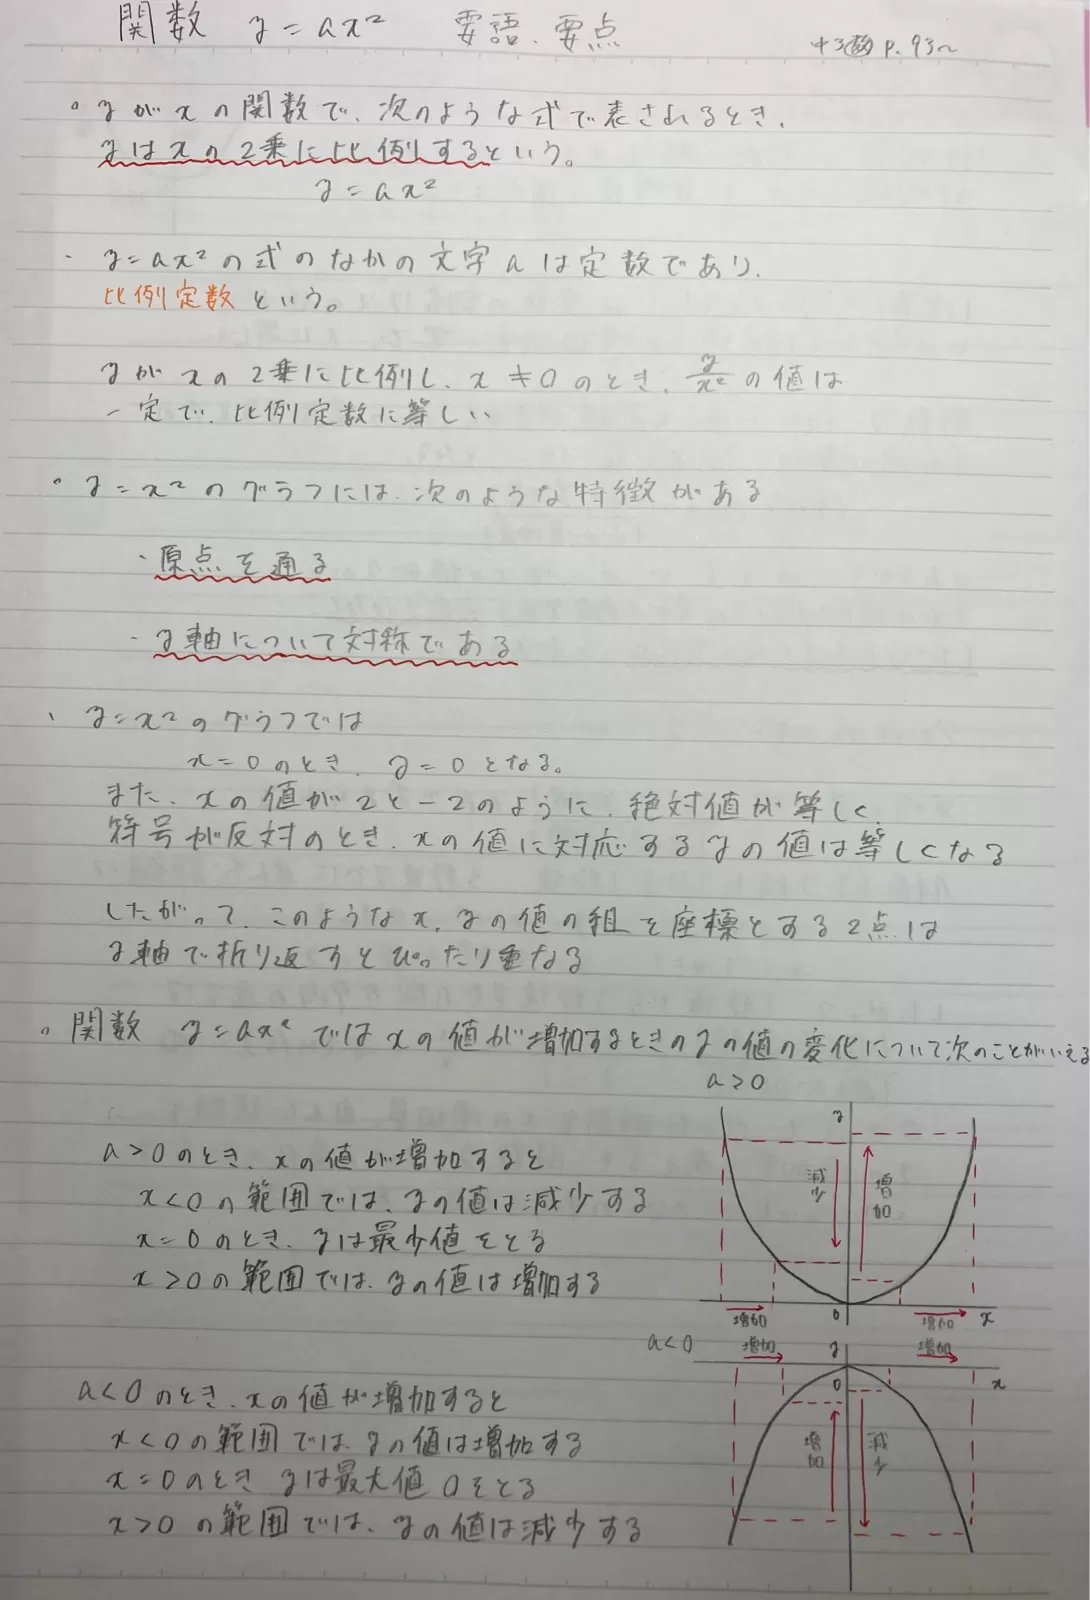 関数 y=ax² 要語、要点
中3数 P.93~
。yがxの関数で、次のような式で表されるとき、
yはxの2乗に比例するという。
y=ax²
・y=ax²の式のなかの文字aは定数であり、
比例定数という。
yがxの2乗に比例し、x≠0のとき、y/x²の値は
一定で、比例定数に等しい
。y=x²のグラフには、次のような特徴がある
・原点を通る
・y軸について対称である
、y=x²のグラフでは
x=0のとき、y=0となる。
また、xの値が2と-2のように、絶対値が等しく、
符号が反対のとき、xの値に対応するyの値は等しくなる
したがって、このようなx,yの値の組を座標とする2点は
y軸で折り返すとぴったり重なる
。関数 y=ax²ではxの値が増加するときのyの値の変化について次のことがいえる
a>0
a>0のとき、xの値が増加すると
x<0の範囲では、yの値は減少する
x=0のとき、yは最少値をとる
x>0の範囲では、yの値は増加する
y
減少
増加
増加
0
増加
x
a<0
増加
y
増加
0
x
増加
減少
a<0のとき、xの値が増加すると
x<0の範囲では、yの値は増加する
x=0のとき yは最大値0をとる
x>0の範囲では、yの値は減少する